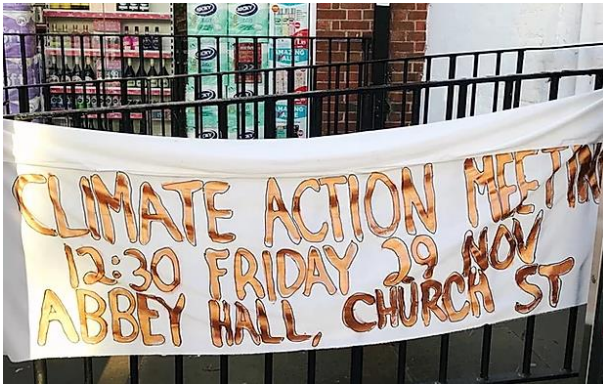 CLIMATE ACTION MEETIN
12:30 FRIDAY 29 NOV
ABBEY HALL, CHURCH ST